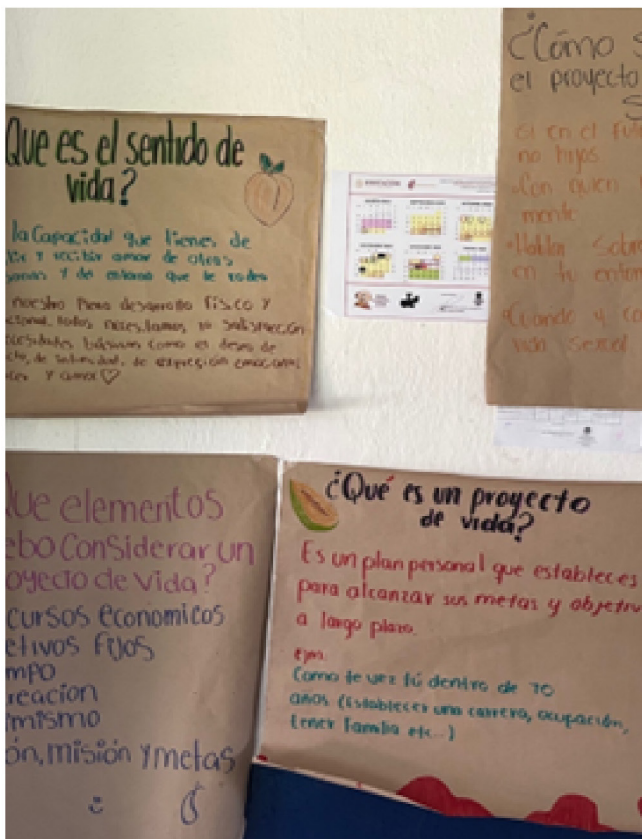 Que es el sentido de
vida?
la Capacidad que tienes de
y recibir amor de otras
y de entorno que le rodea
nuestro Pleno desarrollo Físico y
todos necesitamos la satisfacción
básicas como el deseo de
de expresión emocional
y amor
¿Cómo
el proyecto
si en el
no hijos
Con quien
mente
Hablar sobre
en tu
Cuando y
vida sexual
ue elementos
ebo Considerar un
oyecto de vida?
cursos economicos
etivos fijos
mpo
reacion
mismo
ón, misión y metas
¿Qué es un proyecto
de vida?
Es un plan personal que estableces
para alcanzar sus metas y objetiv
a largo plazo.
ejm.
Como te vez tú dentro de 10
años (Establecer una carrera, ocupación,
tener familia etc...)